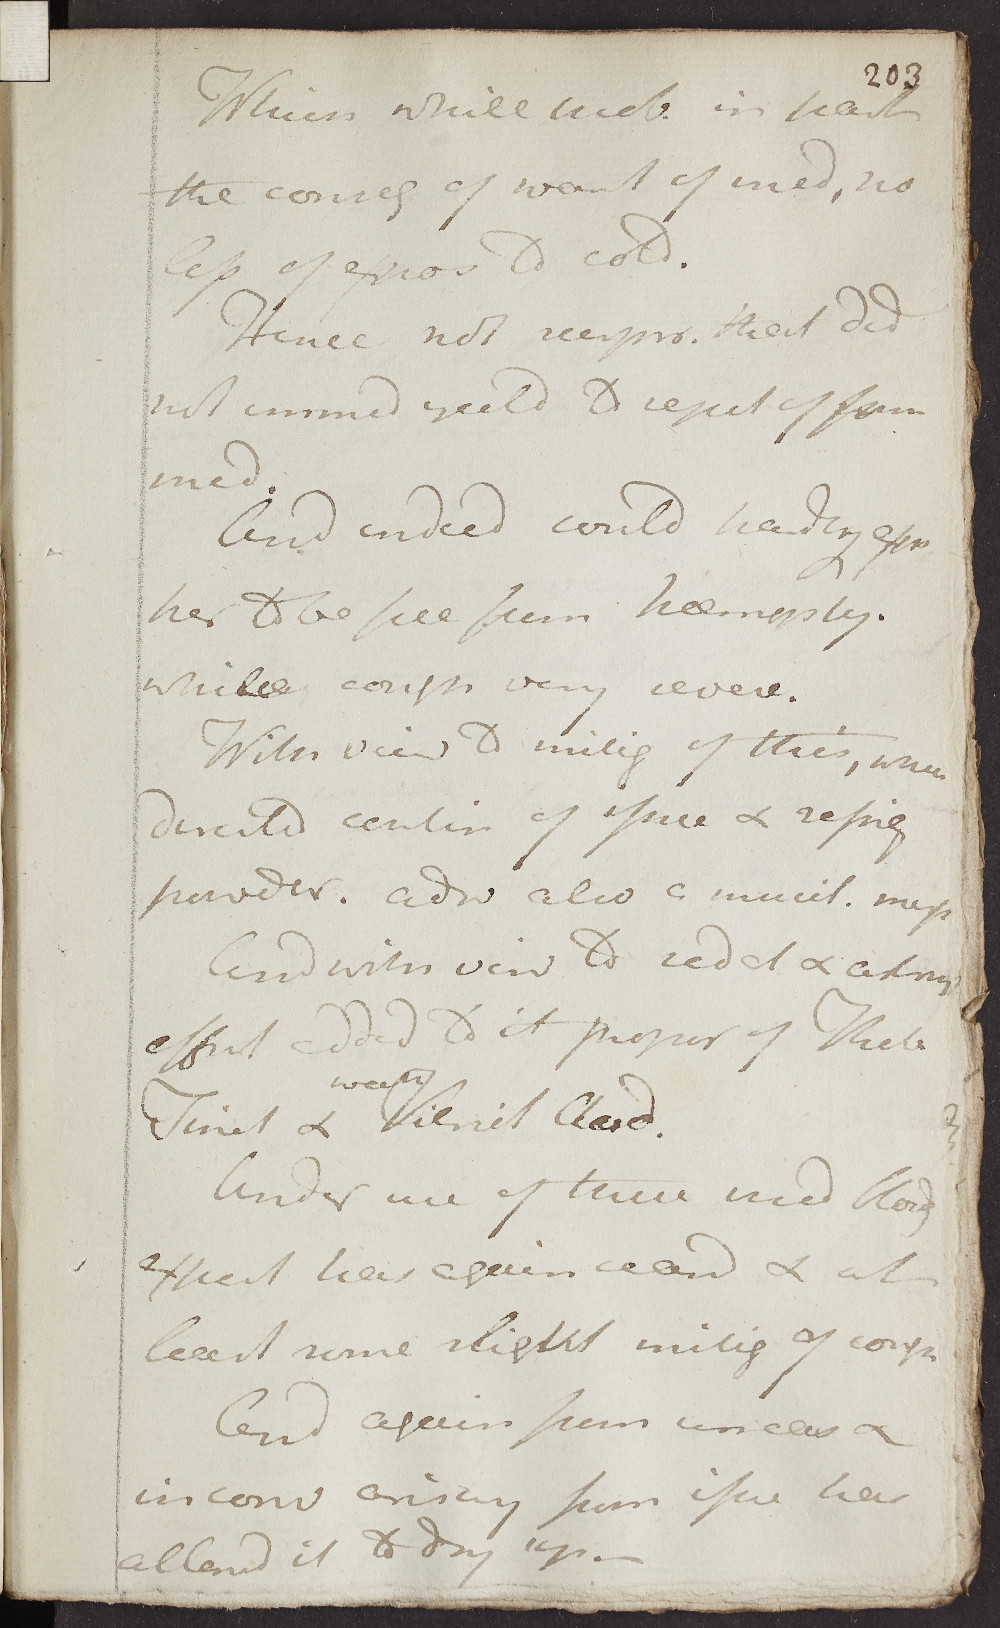 203
Which while prob. in part
the conseq of want of med, no
less of expos to cold.
Hence not surpris. that did
not immed yeeld to repet of form
med.
And indeed could hardly expec
her to be free from hæmopty.
while cough very severe.
With view to mitig of this, when
directed contin of issue & refrig
powder. adv also a mucil. mixt
And with view to sedat & astring
effect added to it propor of Theb
Tinct & weak Vitriol Acid.
Under use of these med bloody
expect has again ceasd & at
least some slight mitig of cough
And again from uneas &
inconv arising from issue has
allowd it to dry up.